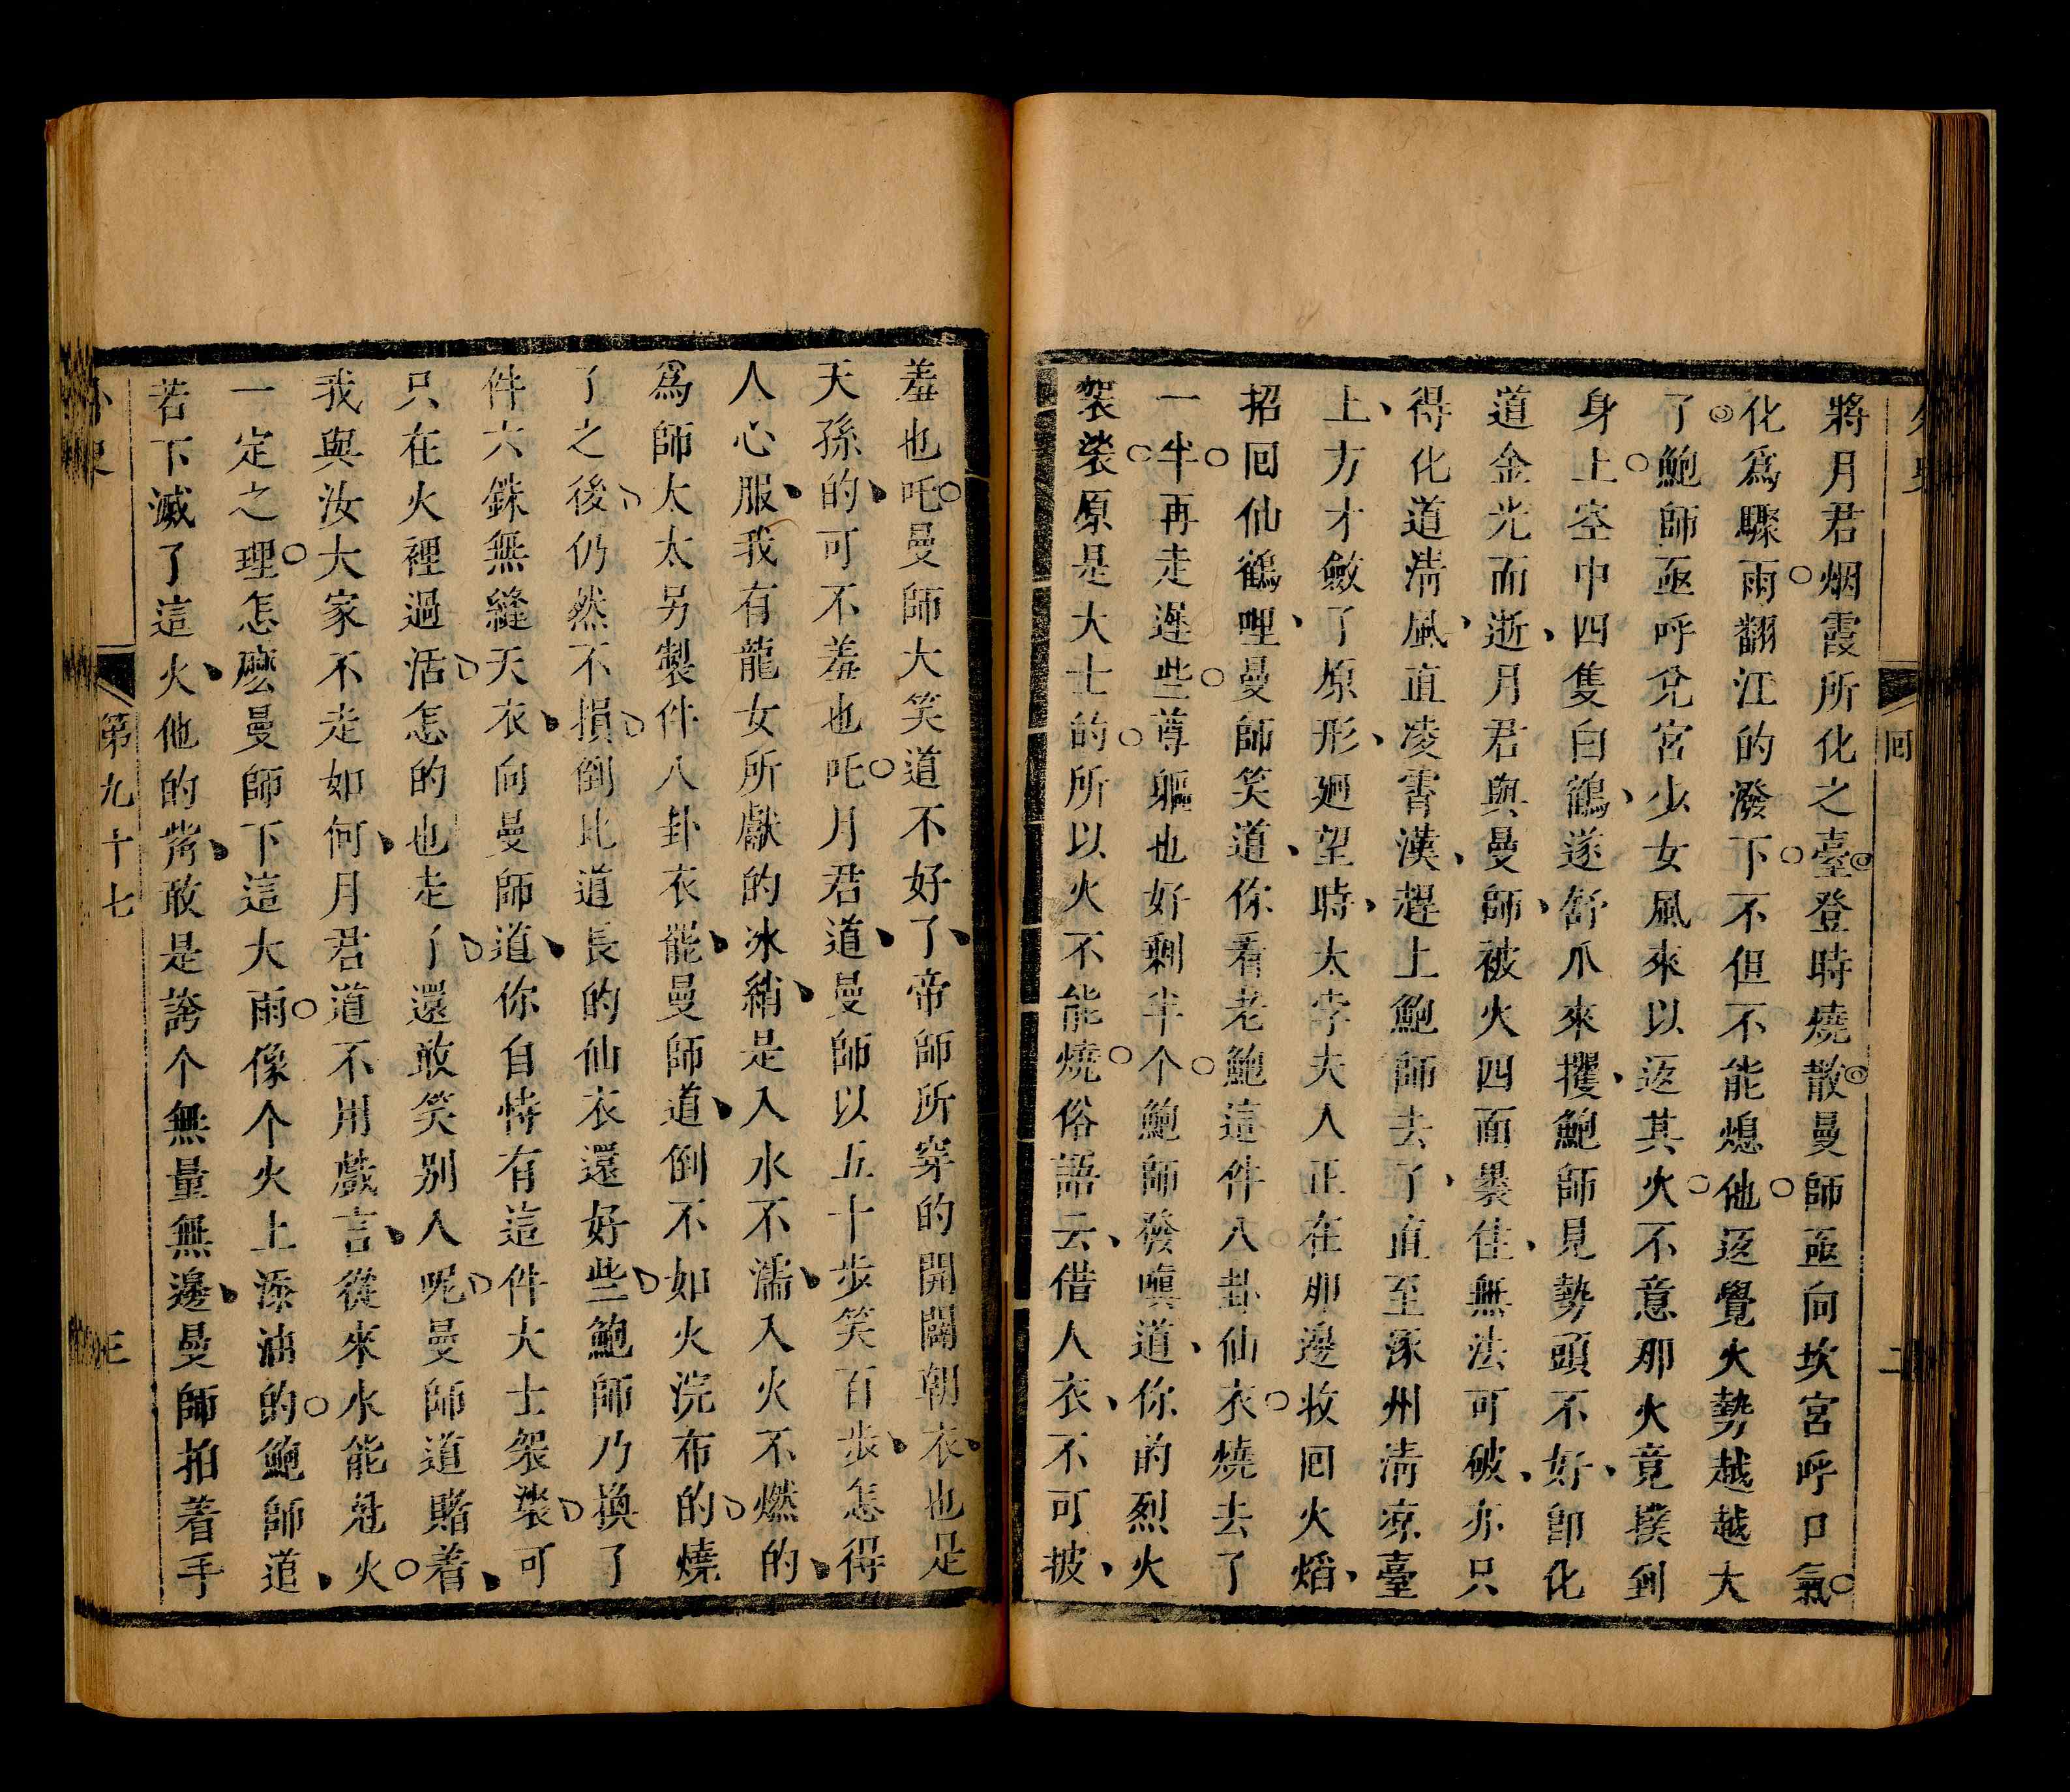 外史
回
二
將月君烟霞所化之臺登時燒散曼師亟向坎宮呼口氣
化爲驟雨翻江的潑下不但不能熄他返覺火勢越越大
了鮑師亟呼兌宮少女風來以返其火不意那火竟撲到
身上空中四隻白鶴遂舒爪來攫鮑師見勢頭不好卽化
道金光而逝月君與曼師被火四面褁住無法可破亦只
得化道淸風直凌霄漢趕上鮑師去了直至涿州淸凉臺
上方才斂了原形廻望時太孛夫人正在那邊收回火熖
招回仙鶴哩曼師笑道你看老鮑這件八卦仙衣燒去了
一半再走遲些尊軀也好剩半个鮑師發嗔道你的烈火
袈裟原是大士的所以火不能燒俗語云借人衣不可披
羞也吒曼師大笑道不好了帝師所穿的開闢朝衣也是
天孫的可不羞也吒月君道曼師以五十步笑百步怎得
人心服我有龍女所獻的冰綃是入水不濡入火不燃的
爲師太太另製件八卦衣能曼師道倒不如火浣布的燒
了之後仍然不損倒比道長的仙衣還好些鮑師乃換了
件六銖無縫天衣向曼師道你自恃有這件大士袈裟可
只在火裡過活怎的也走了還敢笑别人呢曼師道賭着
我與汝大家不走如何月君道不用戲言從來水能尅火
一定之理怎麽曼師下這大雨像个火上添油的鮑師道
若下滅了這火他的嘴敢是誇个無量無邊曼師拍着手
外史
第九十七
三